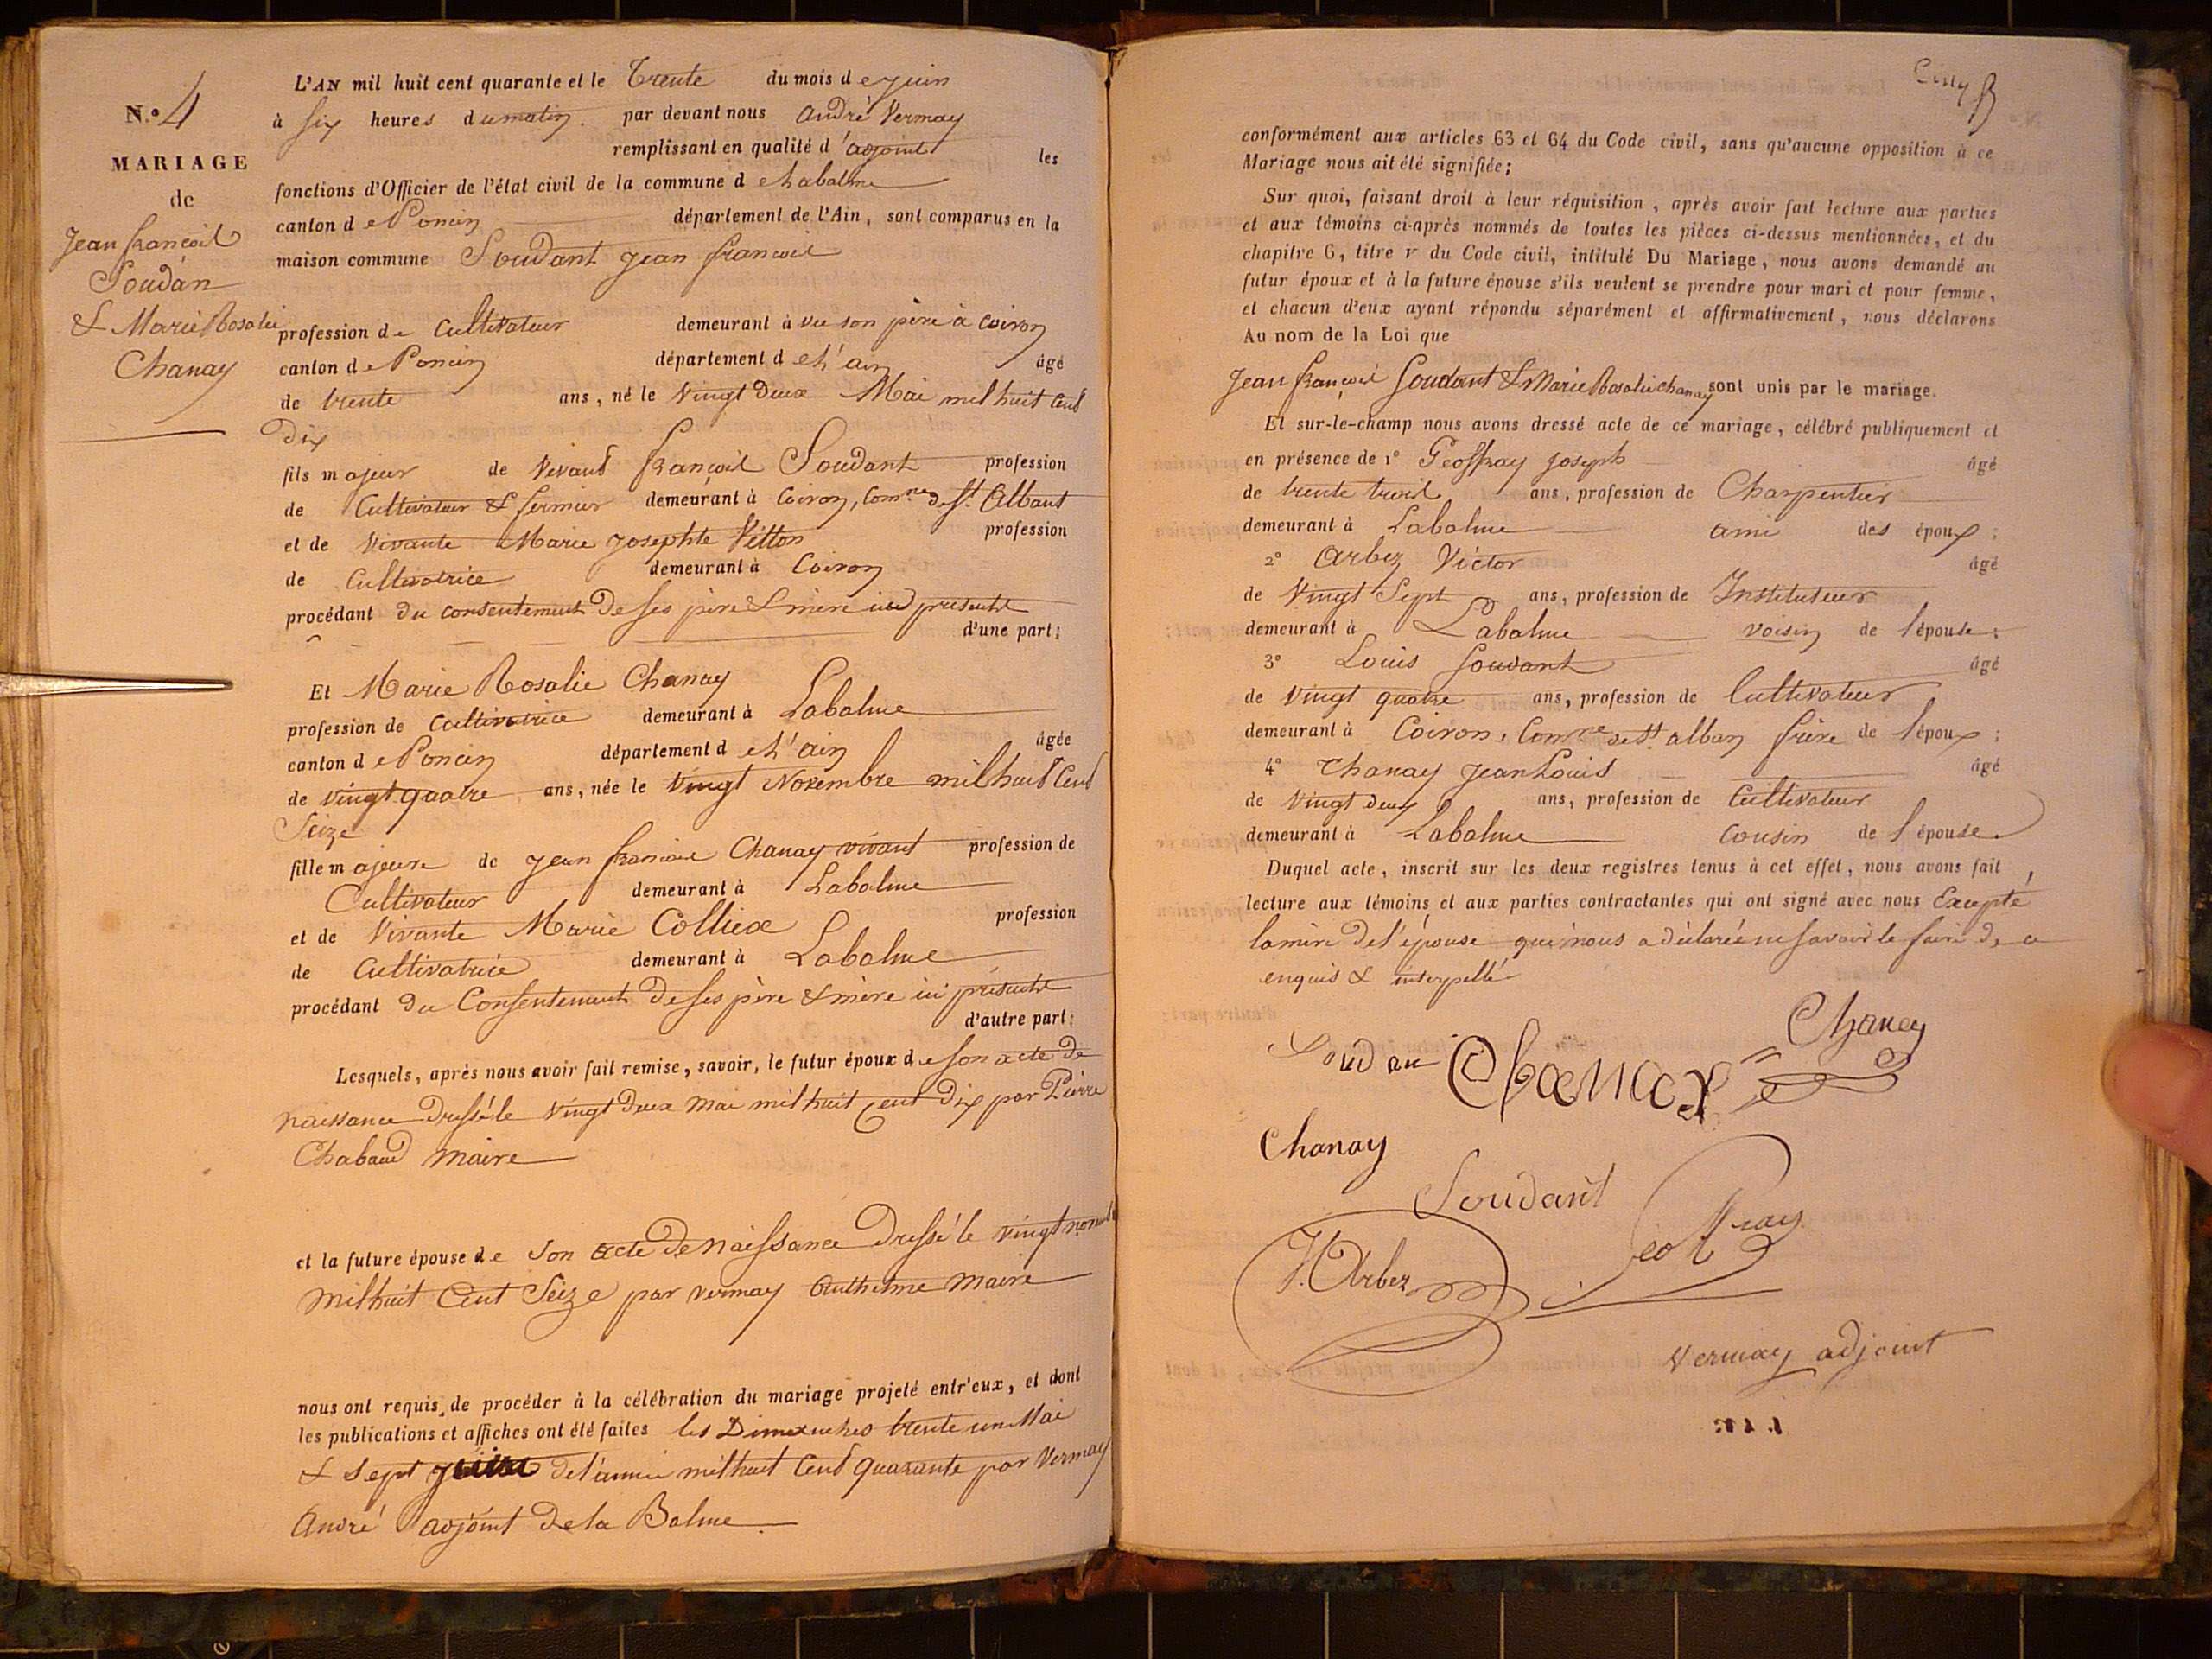 N.º 4
MARIAGE
de
Jean françois
Soudan
& Marie Rosalie
Chanay
L'AN mil huit cent quarante et le Trente du mois de juin
à six heures du matin. par devant nous André Vermay
remplissant en qualité d'adjoint les
fonctions d'Officier de l'état civil de la commune de Labalme
canton de Poncin département de l'Ain, sont comparus en la
maison commune Soudant jean françois
profession de Cultivateur demeurant à son père à Coiron
canton de Poncin département de L'ain âgé
de trente ans, né le Vingt Deux Mai mil huit Cent
Dix
fils majeur de Vivant françois Soudant profession
de Cultivateur & fermier demeurant à Coiron, Com.ne de St. Albant
et de Vivante Marie Josephte Vitton profession
de Cultivatrice demeurant à Coiron
procédant du consentement De ses père & mère ici présents
d'une part;
Et Marie Rosalie Chanay
profession de Cultivatrice demeurant à Labalme
canton de Poncin département de L'ain âgée
de vingt quatre ans, née le Vingt Novembre mil huit Cent
Seize
fille majeure de jean françois Chanay vivant profession de
Cultivateur demeurant à Labalme
et de Vivante Marie Colliex profession
de Cultivatrice demeurant à Labalme
procédant du Consentement De ses père & mère ici présents
d'autre part:
Lesquels, après nous avoir fait remise, savoir, le futur époux de son acte de
naissance Dressé le Vingt Deux mai mil huit Cent Dix par Pierre
Chabaud maire
et la future épouse de Son acte de naissance Dressé le vingt
mil huit Cent Seize par vermay Anthelme maire
nous ont requis de procéder à la célébration du mariage projeté entr'eux, et dont
les publications et affiches ont été faites les Dimanches trente un Mai
& sept juin de l'année mil huit Cent quarante par Vermay
André adjoint de la Balme.
Cinq
conformément aux articles 63 et 64 du Code civil, sans qu'aucune opposition à ce
Mariage nous ait été signifiée;
Sur quoi, faisant droit à leur réquisition, après avoir fait lecture aux parties
et aux témoins ci-après nommés de toutes les pièces ci-dessus mentionnées, et du
chapitre 6, titre v du Code civil, intitulé Du Mariage, nous avons demandé au
futur époux et à la future épouse s'ils veulent se prendre pour mari et pour femme,
et chacun d'eux ayant répondu séparément et affirmativement, nous déclarons
Au nom de la Loi que
Jean françois Soudant & Marie Rosalie chanay sont unis par le mariage.
Et sur-le-champ nous avons dressé acte de ce mariage, célébré publiquement et
en présence de 1º Geoffray joseph âgé
de trente trois ans, profession de Charpentier
demeurant à Labalme ami des époux;
2º Arbez Victor âgé
de Vingt Sept ans, profession de Instituteur
demeurant à Labalme voisin de l'épouse;
3º Louis Soudant âgé
de vingt quatre ans, profession de Cultivateur
demeurant à Coiron, Com.ne de St. alban frère de l'époux;
4º Chanay Jean Louis âgé
de Vingt deux ans, profession de Cultivateur
demeurant à Labalme Cousin de l'épouse.
Duquel acte, inscrit sur les deux registres tenus à cet effet, nous avons fait
lecture aux témoins et aux parties contractantes qui ont signé avec nous Excepté
la mère De l'épouse qui nous a déclaré ne savoir le faire de ce
enquis & interpellé
Soudan Chanay Chanay
Chanay
Soudant
V. Arbez Geoffray
Vermay adjoint